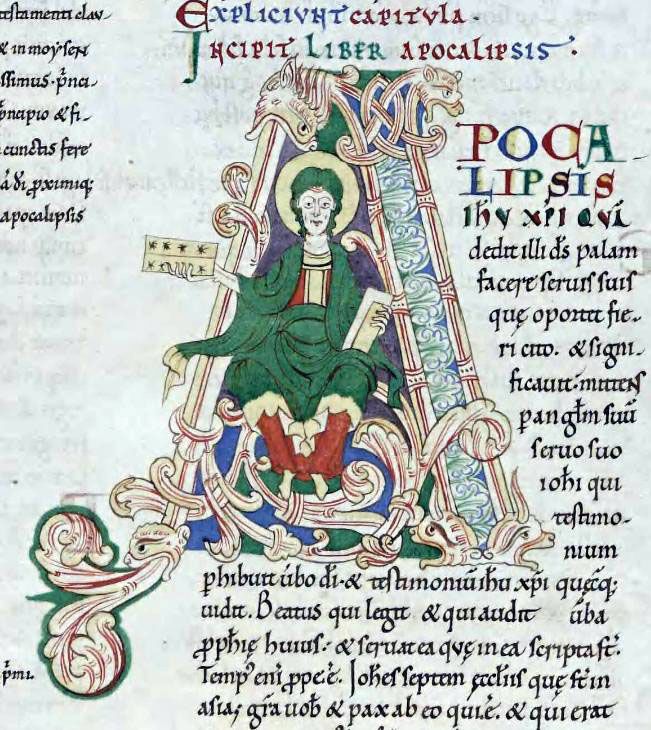 testamenti clau-
& in moysen
ssimus. p̄nci-
p̄ncipio & fi-
cunctis fere
a di proximiq;
apocalipsis
p̄mi.
EXPLICIUNT CAPITULA.
INCIPIT LIBER APOCALIPSIS.
APOCA-
LIPSIS
ihu xp̄i quā
dedit illi d̄s palam
facere seruis suis
quę oportet fie-
ri cito. & signi-
ficauit. mittens
p angl̄m suū
seruo suo
iohi qui
testimo-
nium
phibuit ūbo dī. & testimoniū ihu xp̄i quęcq;
uidit. Beatus qui legit & qui audit ūba
pph̄ię huius. & seruat ea quę in ea scripta st̄.
Temp' eni ppe ē. Ioh̄es septem ęccl̄iis quę st̄ in
asia; gr̄a uob̄ & pax ab eo qui ē. & qui erat